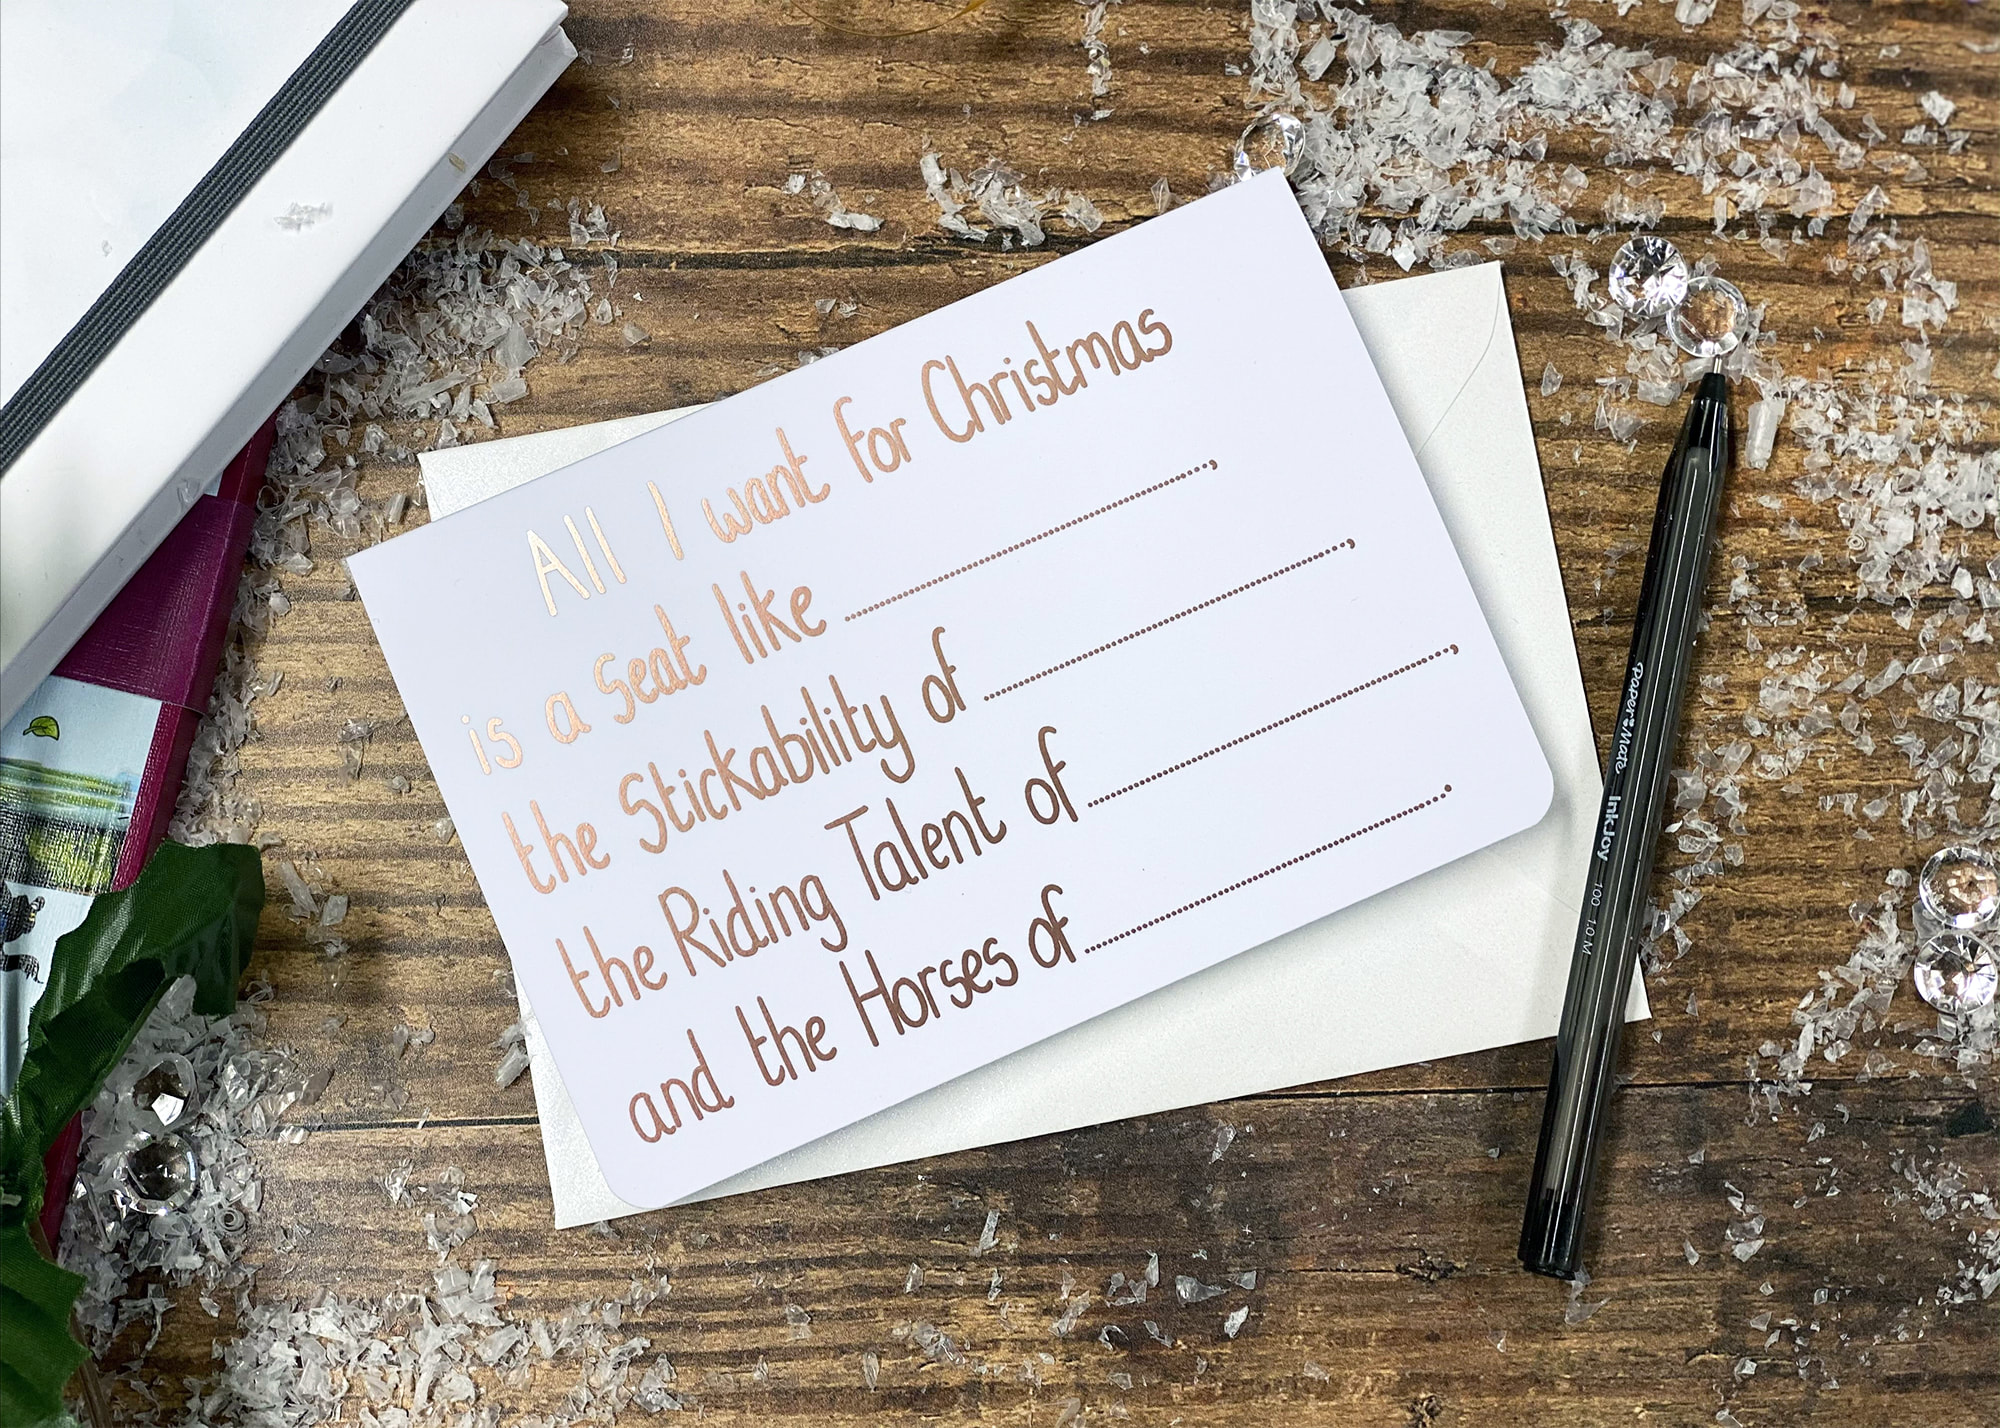 All I want for Christmas
is a Seat like ....................,
the Stickability of ....................,
the Riding Talent of ....................,
and the Horses of .....................
Paper Mate InkJoy 100 1.0 M